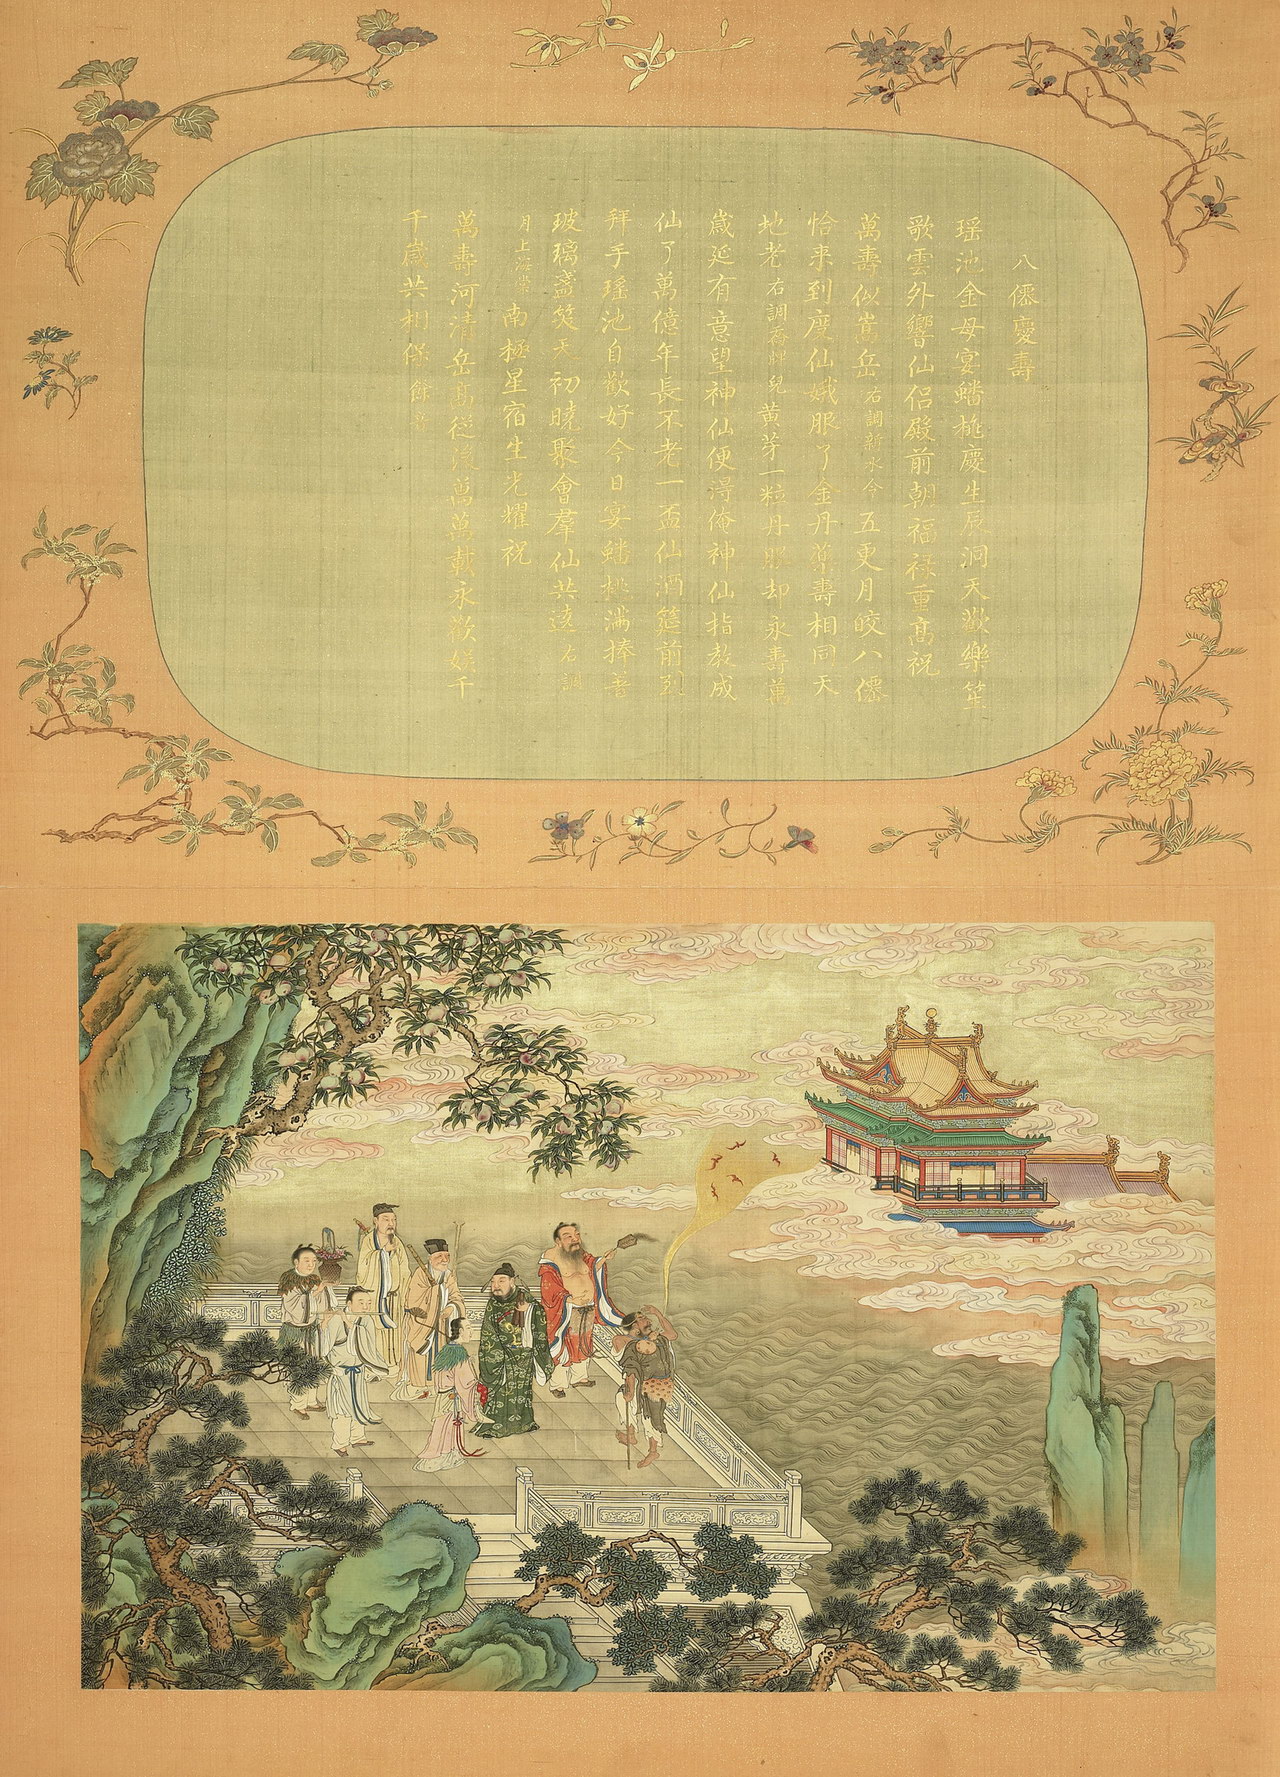 八僊慶壽
瑤池金母宴蟠桃慶生辰洞天歡樂笙
歌雲外響仙侶殿前朝福祿重高祝
萬壽似嵩岳右調新水令五更月皎八僊
恰來到度仙娥服了金丹藥壽相同天
地老右調兒黃芽一粒丹服却永壽萬
歲延有意望神仙便淂俺神仙指教成
仙了萬億年長不老一盃仙酒筵前到
拜手瑤池自歡好今日宴蟠桃滿捧著
玻璃盞笑天初曉聚會羣仙共遶右調
月上海棠南極星宿生光耀祝
萬壽河清岳高從後萬萬載永歡娛千
千歲共相保餘音